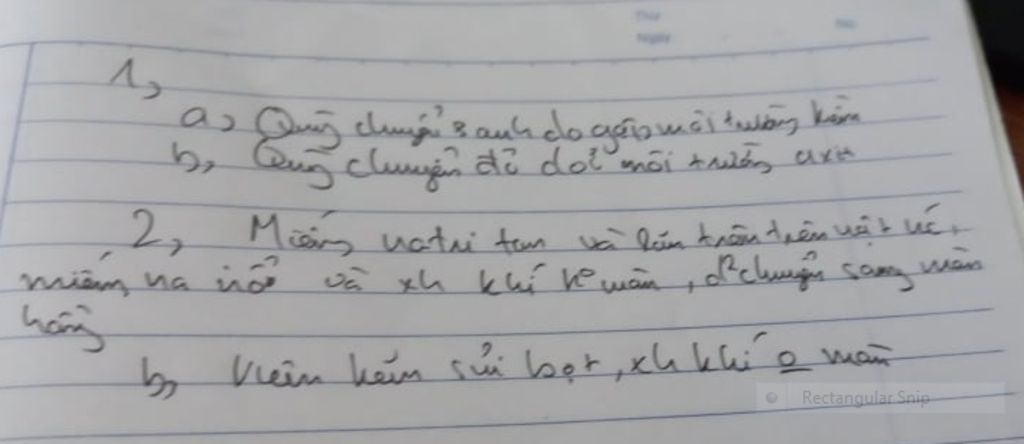 1,
a, Quỳ chuyển xanh do gặp môi trường kiềm
b, Quỳ chuyển đỏ do môi trường axit
2, Miếng natri tan và lăn tròn trên mặt nước,
miếng na nổ và xh khí ko màu, d² chuyển sang màu
hồng
b, Viên kẽm sủi bọt, xh khí o màu
Rectangular Snip